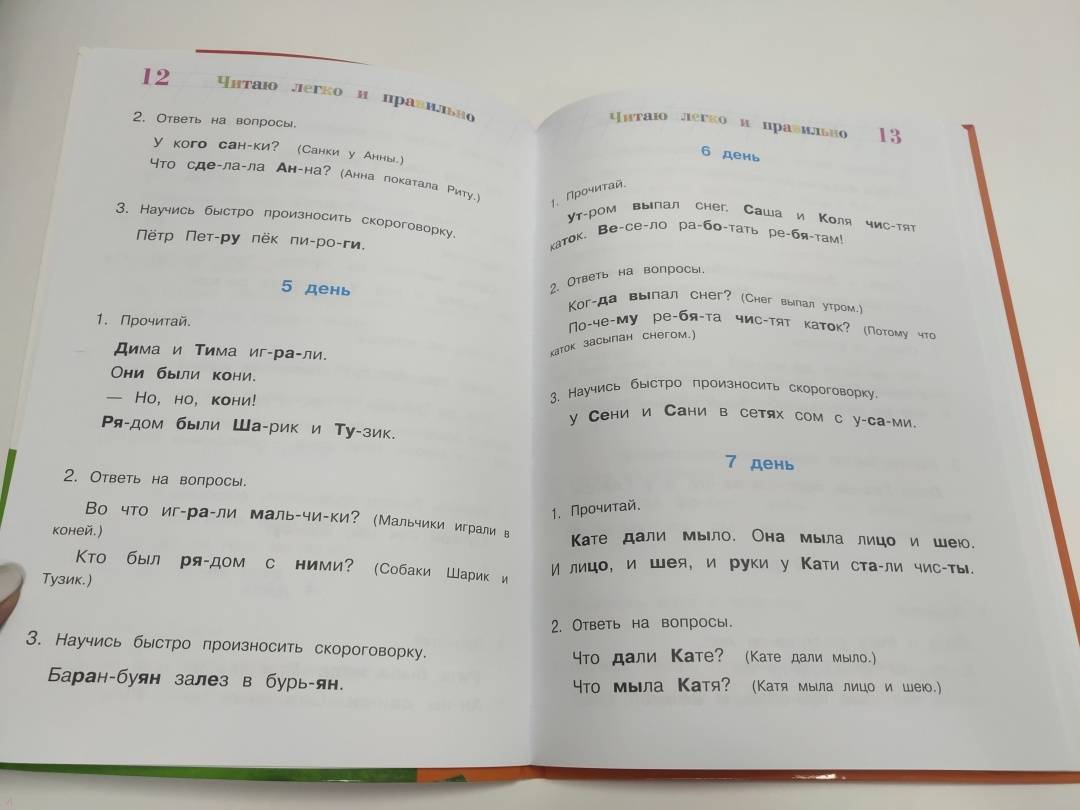 12 Читаю легко и правильно
2. Ответь на вопросы.
У кого сан-ки? (Санки у Анны.)
Что сде-ла-ла Ан-на? (Анна покатала Риту.)
3. Научись быстро произносить скороговорку.
Пётр Пет-ру пёк пи-ро-ги.
5 день
1. Прочитай.
Дима и Тима иг-ра-ли.
Они были кони.
— Но, но, кони!
Ря-дом были Ша-рик и Ту-зик.
2. Ответь на вопросы.
Во что иг-ра-ли маль-чи-ки? (Мальчики играли в
коней.)
Кто был ря-дом с ними? (Собаки Шарик и
Тузик.)
3. Научись быстро произносить скороговорку.
Баран-буян залез в бурь-ян.
Читаю легко и правильно 13
6 день
1. Прочитай.
Ут-ром выпал снег. Саша и Коля чис-тят
каток. Ве-се-ло ра-бо-тать ре-бя-там!
2. Ответь на вопросы.
Ког-да выпал снег? (Снег выпал утром.)
По-че-му ре-бя-та чис-тят каток? (Потому что
каток засыпан снегом.)
3. Научись быстро произносить скороговорку.
У Сени и Сани в сетях сом с у-са-ми.
7 день
1. Прочитай.
Кате дали мыло. Она мыла лицо и шею.
И лицо, и шея, и руки у Кати ста-ли чис-ты.
2. Ответь на вопросы.
Что дали Кате? (Кате дали мыло.)
Что мыла Катя? (Катя мыла лицо и шею.)